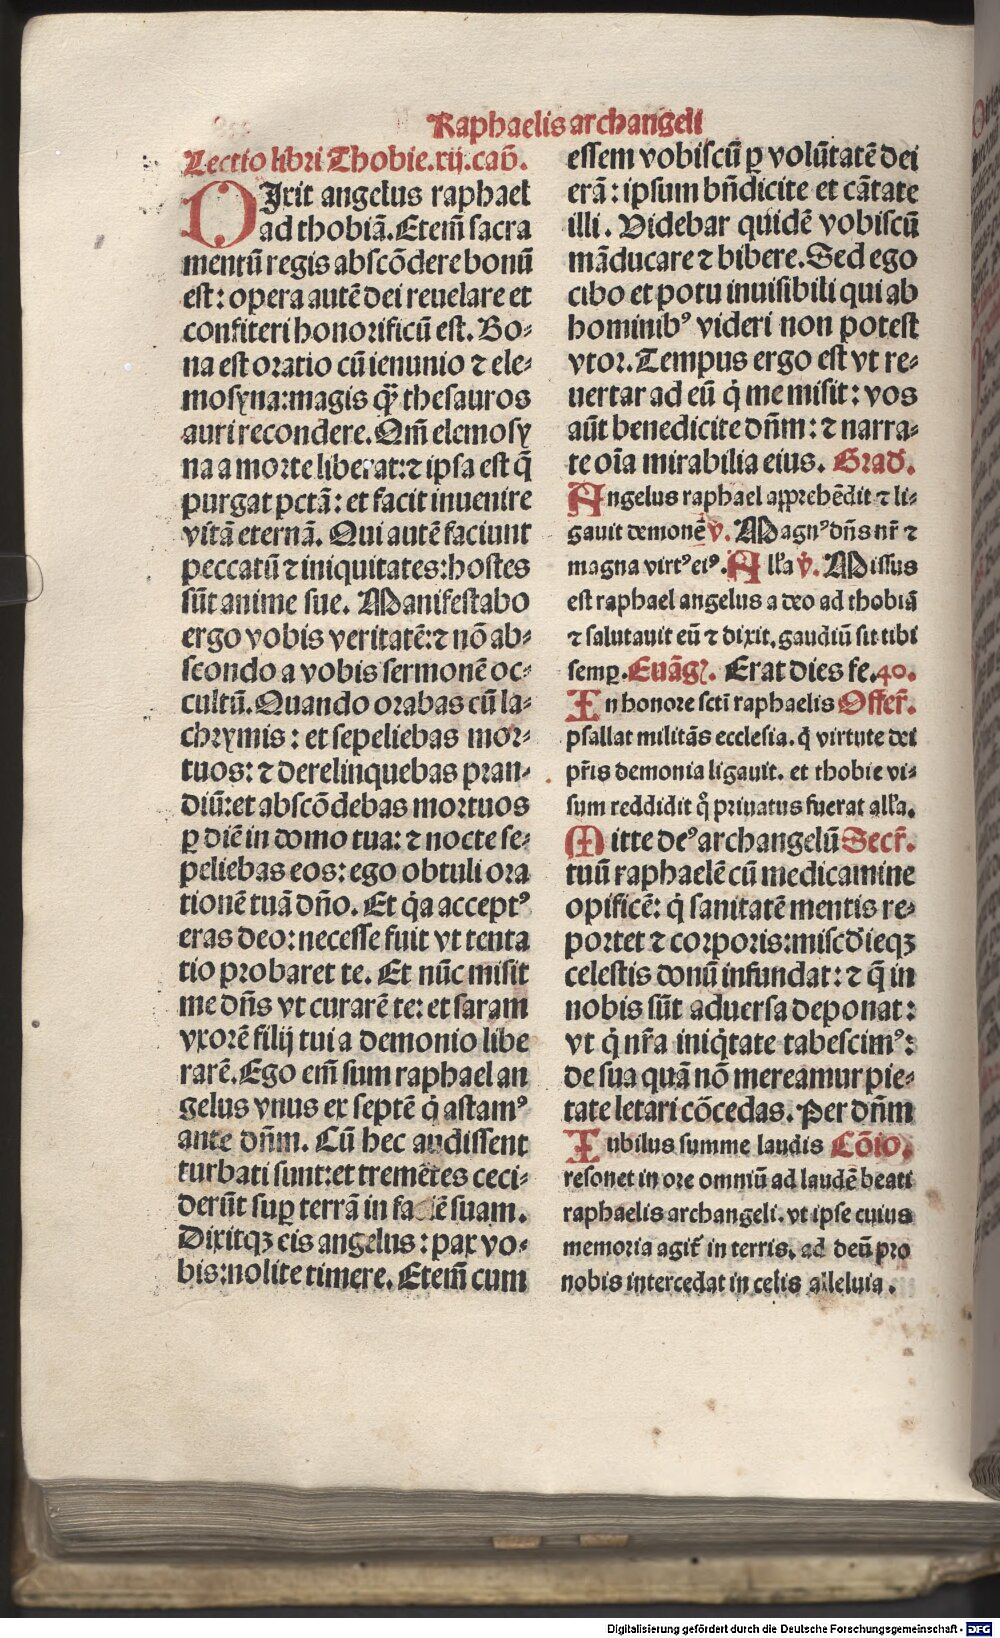 Raphaelis archangeli
Lectio libri Thobie.xij.cap̄.
DIxit angelus raphael
ad thobiā. Etem̄ sacra
mentū regis abscōdere bonū
est: opera autē dei reuelare et
confiteri honorificū est. Bo-
na est oratio cū ieiunio ⁊ ele-
mosyna: magis q̄ꝫ thesauros
auri recondere. Qm̄ elemosy
na a morte liberat: ⁊ ipsa est q̄
purgat pctā: et facit inuenire
vitā eternā. Qui autē faciunt
peccatū ⁊ iniquitates: hostes
sūt anime sue. Manifestabo
ergo vobis veritatē: ⁊ nō ab-
scondo a vobis sermonē oc-
cultū. Quando orabas cū la-
chrymis: et sepeliebas mor-
tuos: ⁊ derelinquebas pran-
diū: et abscōdebas mortuos
ꝑ diē in domo tua: ⁊ nocte se-
peliebas eos: ego obtuli ora
tionē tuā dn̄o. Et q̇a acceptꝰ
eras deo: necesse fuit vt tenta
tio probaret te. Et nūc misit
me dn̄s vt curarē te: et saram
vxorē filij tui a demonio libe
rarē. Ego em̄ sum raphael an
gelus vnus ex septē q̇ astamꝰ
ante dn̄m. Cū hec audissent
turbati sunt: et tremētes ceci-
derūt suꝑ terrā in faciē suam.
Dixitqꝫ eis angelus: pax vo-
bis: nolite timere. Etem̄ cum
essem vobiscū ꝑ volūtatē dei
erā: ipsum bn̄dicite et cātate
illi. Videbar quidē vobiscū
māducare ⁊ bibere. Sed ego
cibo et potu inuisibili qui ab
hominibꝰ videri non potest
vtor. Tempus ergo est vt re-
uertar ad eū q̇ me misit: vos
aūt benedicite dn̄m: ⁊ narra-
te oīa mirabilia eius. Grad̄.
Angelus raphael apprehēdit ⁊ li-
gauit demonē v̇. Magnꝰ dn̄s nr̄ ⁊
magna virtꝰ eiꝰ. All'a v̇. Missus
est raphael angelus a deo ad thobiā
⁊ salutauit eū ⁊ dixit. gaudiū sit tibi
semꝑ. Euāgl'. Erat dies fe. 40.
In honore scti raphaelis Offer̄.
psallat militās ecclesia. q̇ virtute dei
pr̄is demonia ligauit. et thobie vi-
sum reddidit q̊ priuatus fuerat all'a.
Mitte deꝰ archangelū Secr̄.
tuū raphaelē cū medicamine
opificē: q̇ sanitatē mentis re-
portet ⁊ corporis: miscd̄ieqꝫ
celestis donū infundat: ⁊ q̄ in
nobis sūt aduersa deponat:
vt q̇ nr̄a iniq̇tate tabescimꝰ:
de sua quā nō mereamur pie-
tate letari cōcedas. Per dn̄m
Iubilus summe laudis Cōio.
resonet in ore omniū ad laudē beati
raphaelis archangeli. vt ipse cuius
memoria agit̄ in terris. ad deū pro
nobis intercedat in celis alleluia.
Digitalisierung gefördert durch die Deutsche Forschungsgemeinschaft - DFG